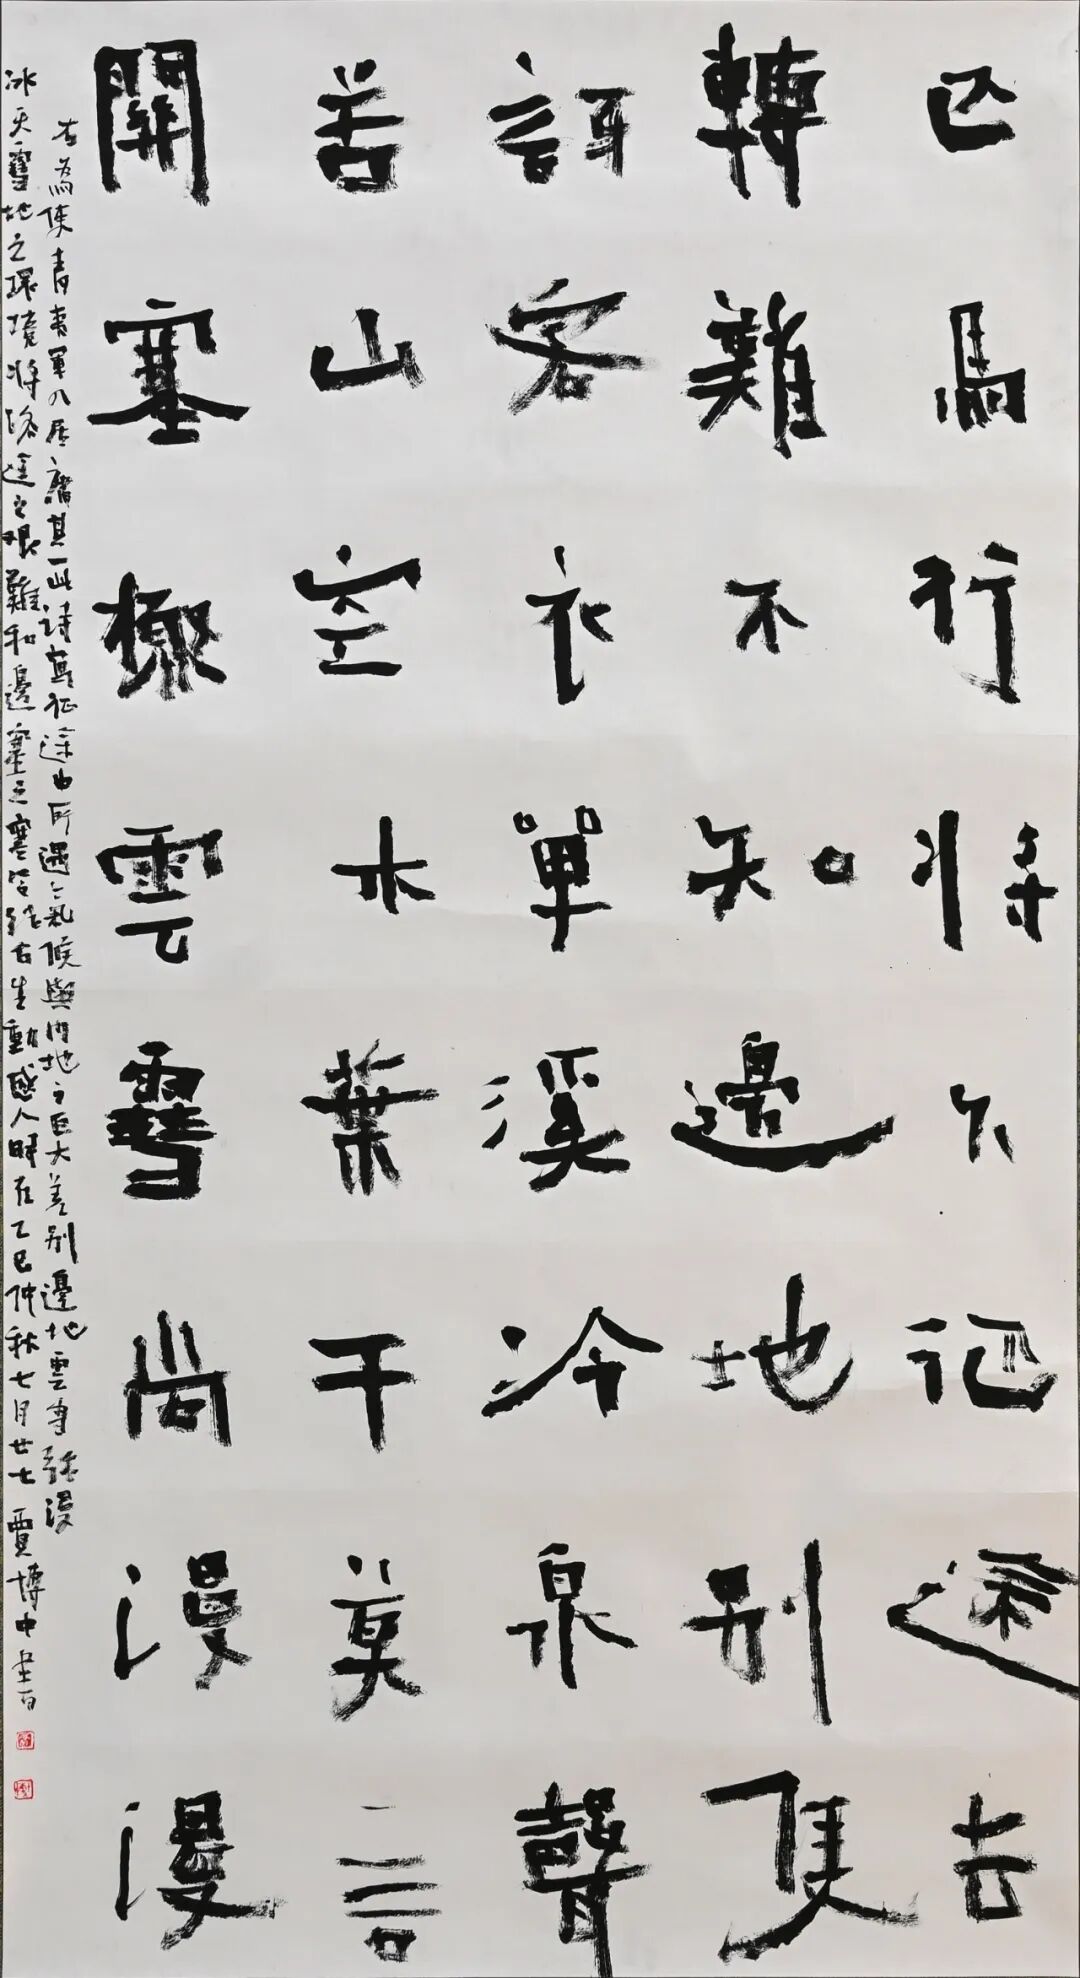 匹馬行將久征途去
轉難不知邊地別隻
訝客衣單溪冷泉聲
苦山空木葉干莫言
關塞極雲雪尚漫漫
右為使青夷軍入居庸其一此詩寫征途中所遇之氣候與內地之巨大差別邊地雲雪漫
冰天雪地之環境將路途之艱難和邊塞之寒冷結合生動感人時在乙巳仲秋七月廿七賈博中書